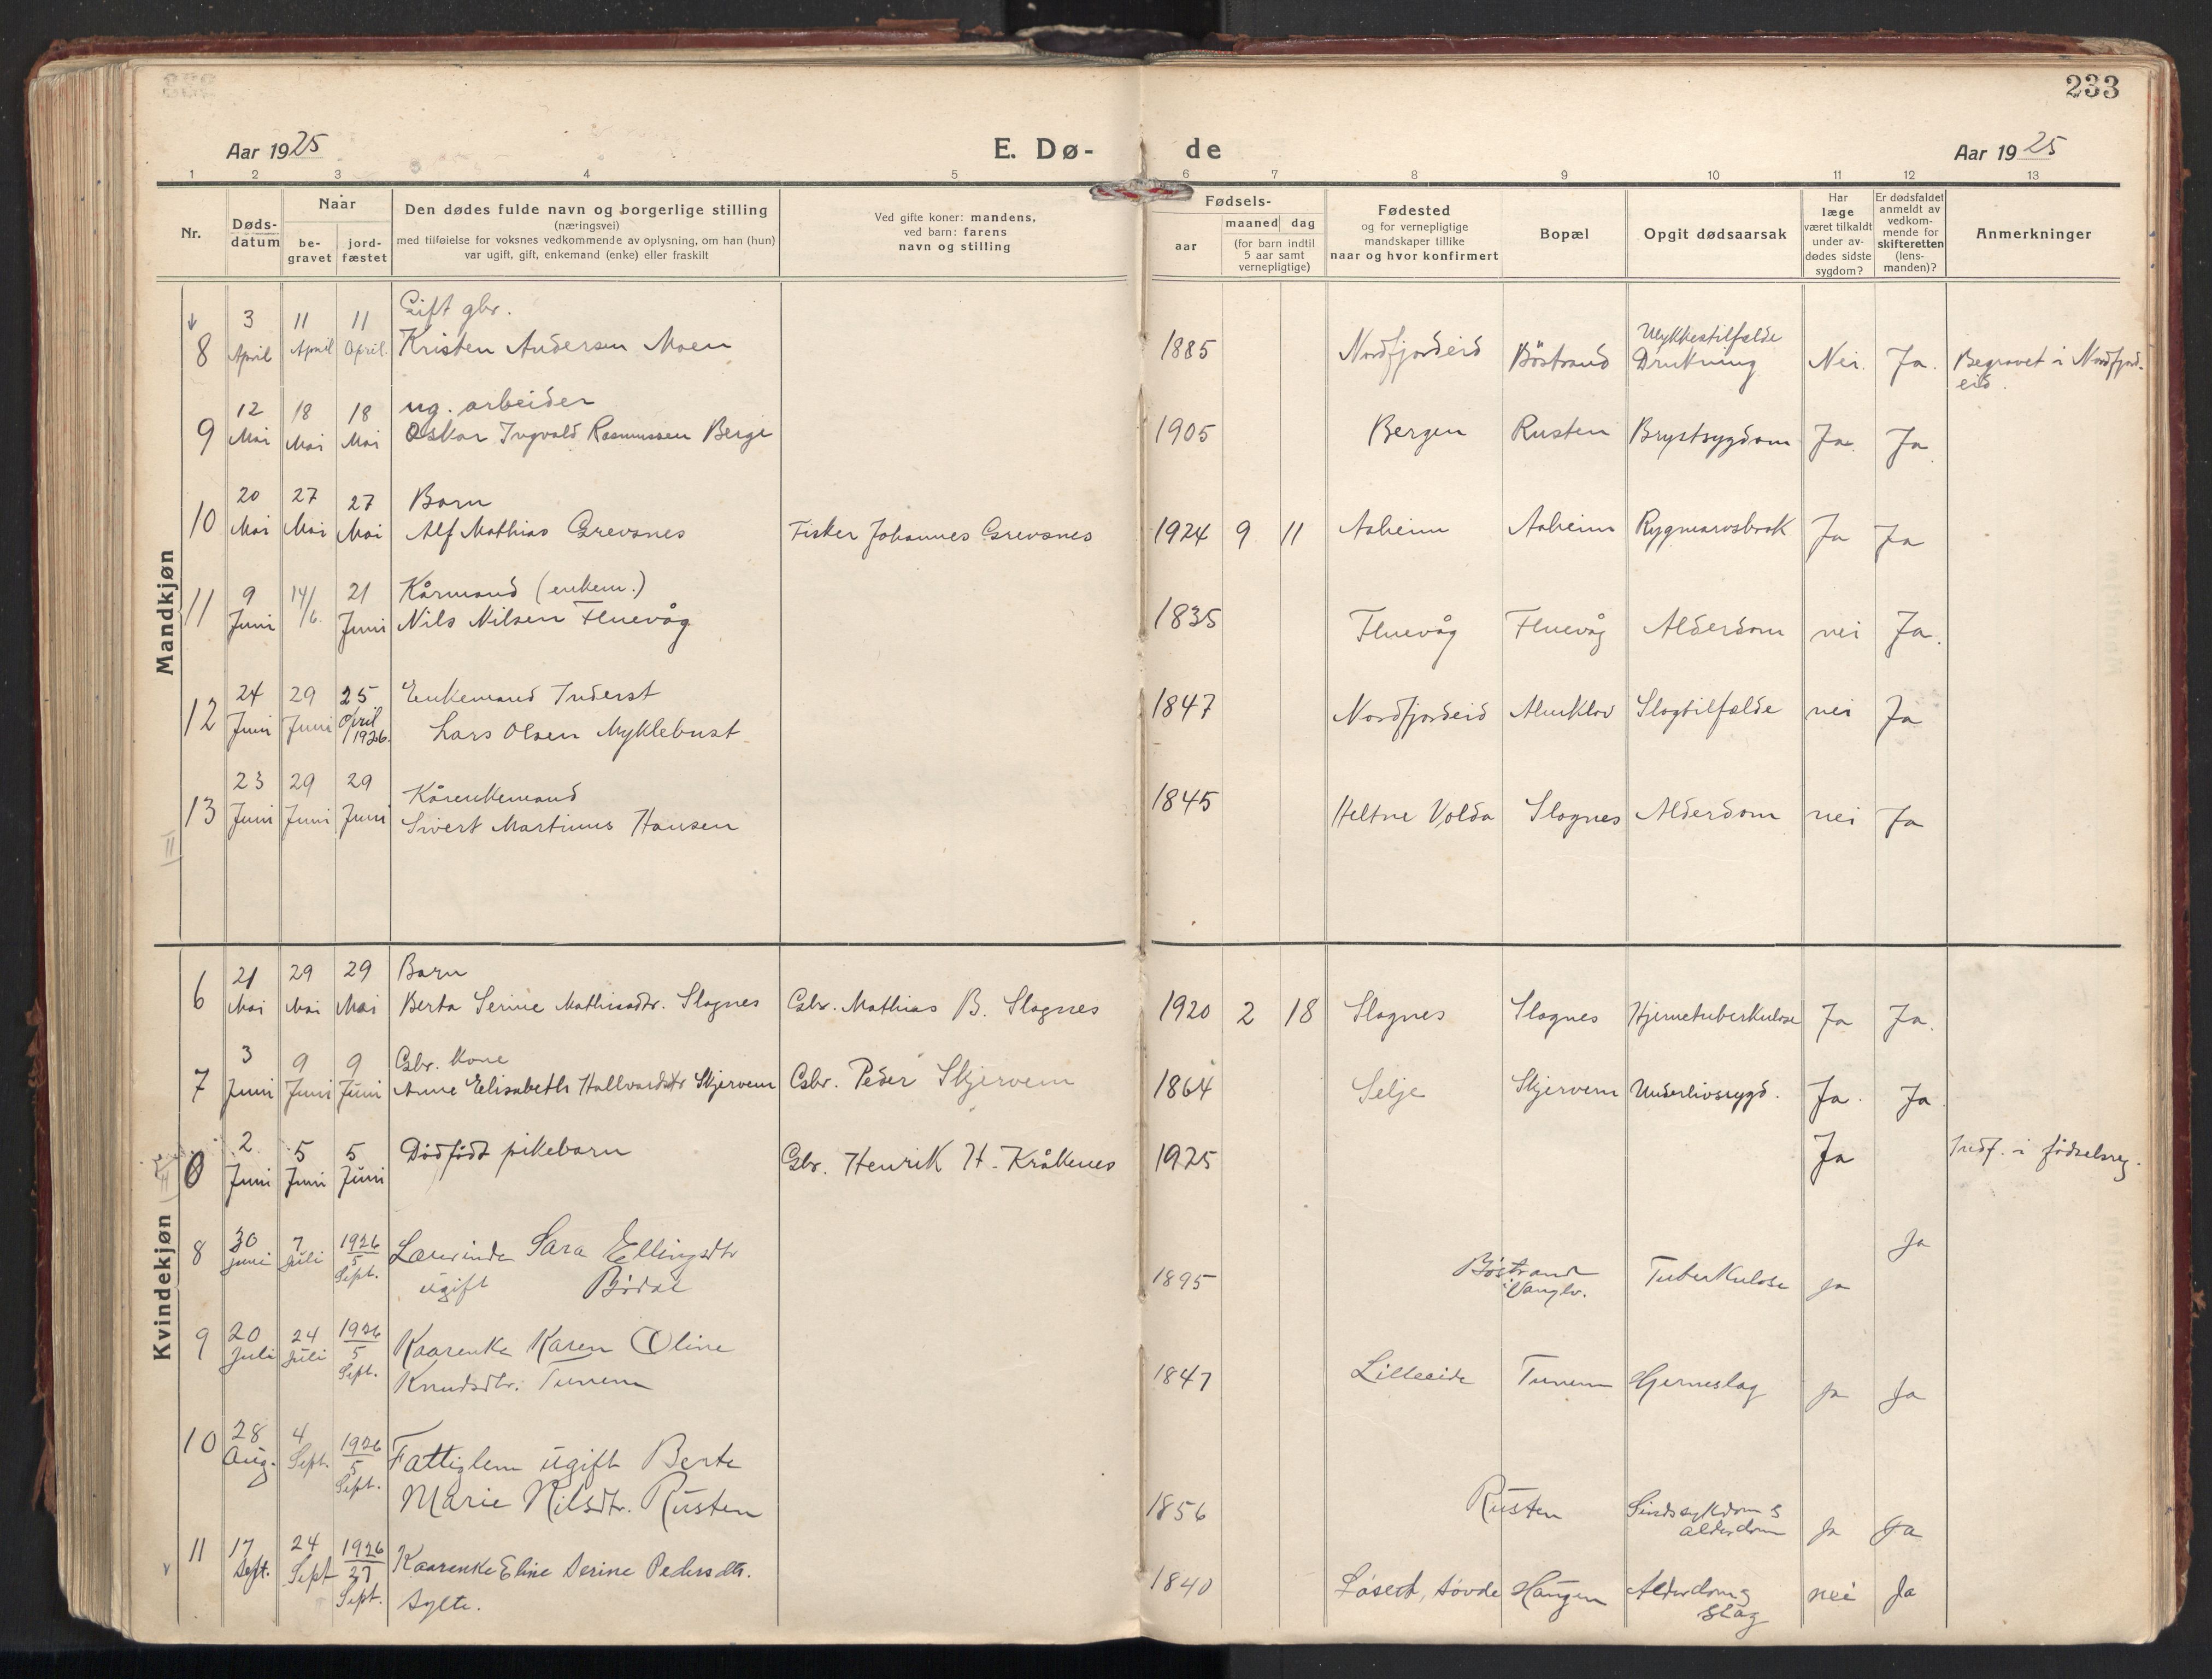 233
Aar 1925
E. Dø-
de
Aar 1925
1 2 3 4 5 6 7 8 9 10 11 12 13
Nr.
Døds-
datum
Naar
be-
gravet
jord-
fæstet
Den dødes fulde navn og borgerlige stilling
(næringsvei)
med tilføielse for voksnes vedkommende av oplysning, om han (hun)
var ugift, gift, enkemand (enke) eller fraskilt
Ved gifte koner: mandens,
ved barn: farens
navn og stilling
Fødsels-
aar
maaned dag
(for barn indtil
5 aar samt
vernepligtige)
Fødested
og for vernepligtige
mandskaper tillike
naar og hvor konfirmert
Bopæl
Opgit dødsaarsak
Har
læge
været tilkaldt
under av-
dødes sidste
sygdom?
Er dødsfaldet
anmeldt av
vedkom-
mende for
skifteretten
(lens-
manden)?
Anmerkninger
Mandkjøn
3 11 11 Gift gbr. Ulykkestilfælde
8 April April April. Kristen Andersen Moen 1885 Nordfjordeid Böstrand Drukning Nei. Ja. Begravet i Nordfjord-
eid.
12 18 18 ug. arbeider
9 Mai Mai Mai Oskar Ingvald Rasmussen Berge 1905 Bergen Rusten Brystsygdom Ja. Ja
20 27 27 Barn
10 Mai Mai Mai Alf Mathias Grevsnes Fisker Johannes Grevsnes 1924 9 11 Aaheim Aaheim Rygmarvsbrok Ja Ja
9 14/6. 21 Kårmand (enkem.)
11 Juni Juni Nils Nilsen Fluevåg 1835 Fluevåg Fluevåg Alderdom nei Ja.
24 29 25 Enkemand Inderst
12 Juni Juni April 1926. Lars Olsen Myklebust 1847 Nordfjordeid Almklov Slagtilfælde nei Ja
23 29 29 Kårenkemand
13 Juni Juni Juni Sivert Martinus Hansen 1845 Heltne Volda Slagnes Alderdom nei Ja
Kvindekjøn
21 29 29 Barn
6 Mai Mai Mai Berta Serine Mathiasdtr. Slagnes Gbr. Mathias B. Slagnes 1920 2 18 Slagnes Slagnes Hjernetuberkulose Ja Ja.
3 9 9 Gbr. kone
7 Juni Juni Juni Anne Elisabeth Hallvardsdtr Skjervem Gbr. Peder Skjervem 1864 Selje Skjervem Underlivssygd. Ja. Ja.
2 5 5
0 Juni Juni Juni Dødfødt pikebarn Gbr. Henrik H. Kråkenes 1925 Ja Indf. i födselsreg.
8 30 Juni 7 Juli 1926 5 Sept. Laurinda Sara Ellingsdtr Ja
ugift Bødal 1895 Böstrand i Vanylv. Tuberkulose Ja
9 20 Juli 24 Juli 1926 5 Sept. Kaarenke Karen Oline
Knudsdtr. Tunem 1847 Lilleeide Tunem Hjerneslag Ja Ja
10 28 Aug. 4 Sept. 1926 5 Sept. Fattiglem ugift Berte
Marie Nilsdtr. Rusten 1856 Rusten Sindssykdom &
alderdom Ja Ja
11 17 Sept. 24 Sept 1926 27 Sept. Kaarenke Eline Serine Pedersdtr.
Sylte. 1840 Søvde Haugen Alderdom &
slag nei Ja